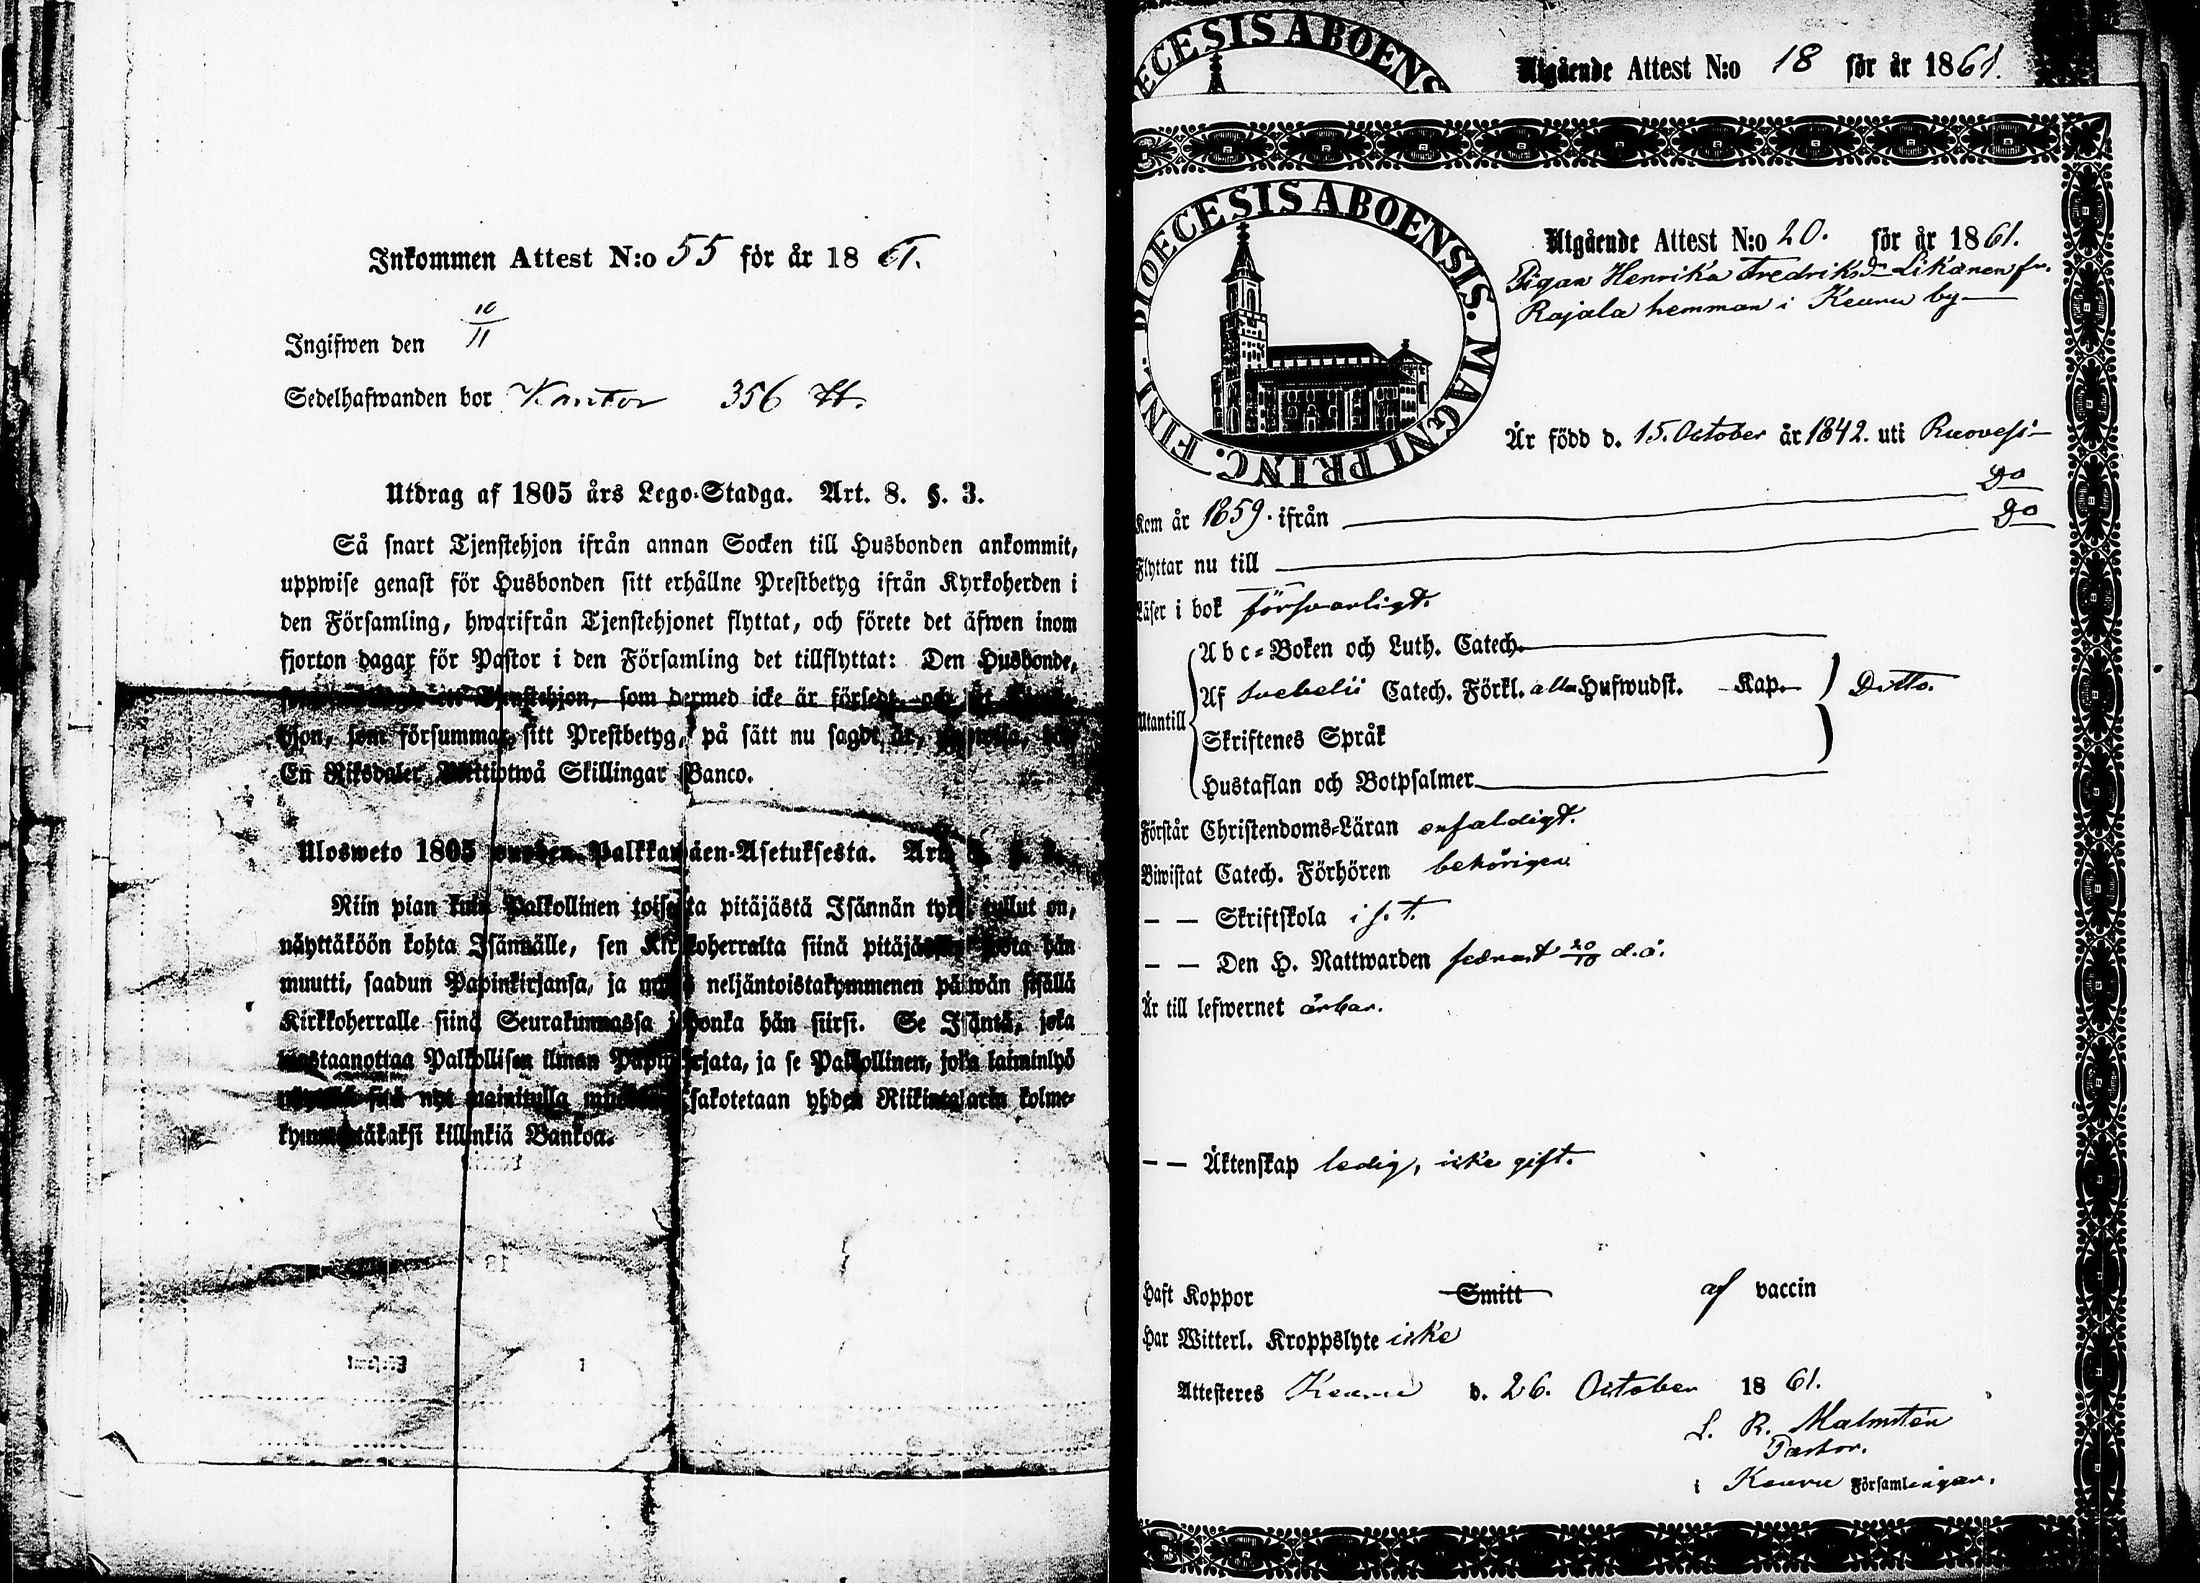 Inkommen Attest N:o 55 för år 18 61.
10/11
Ingifwen den
Sedelhafwanden bor Kantor 356
Utdrag af 1805 års Lego-Stadga. Art. 8. §. 3.
Så snart Tjenstehjon ifrån annan Socken till Husbonden ankommit,
uppwise genast för Husbonden sitt erhållne Prestbetyg ifrån Kyrkoherden i
den Församling, hwarifrån Tjenstehjonet flyttat, och förete det äfwen inom
fjorton dagar för Pastor i den Församling det tillflyttat: Den Husbonde,
Tjenstehjon, som dermed icke är försedt, och
hjon, som försummar, sitt Prestbetyg, på sätt nu sagdt är,
En Riksdaler Trettiotwå Skillingar Banco.
Ulosweto 1805 wuoden Palkkawäen-Asetuksesta. Art.
Niin pian kuin Palkollinen toisesta pitäjästä Isännän tykö tullut on,
näyttäköön kohta Isännälle, sen Kirkkoherralta siinä pitäjässä, josta hän
muutti, saadun Papinkirjansa, ja neljäntoistakymmenen päiwän sisällä
Kirkkoherralle siinä Seurakunnassa johonka hän siirsi. Se Isäntä, joka
wastaanottaa Palkollisen ilman Papinkirjata, ja se Palkollinen, joka laiminlyö
sitä nyt mainitulla sakotetaan yhden Riikintalarin kolme-
kymmentäkaksi killinkiä Bankoa.
DIOECESIS ABOENSIS
Utgående Attest N:o 18 för år 1861.
DIOECESIS ABOENSIS. MAGNI PRINC. FINL.
Utgående Attest N:o 20. för år 1861.
Pigan Henrika Fredriksdr Likanen fr.
Rajala hemman i Keuru by
Är född d. 15. October år 1842. uti Ruovesi
Kom år 1859. ifrån Do
Flyttar nu till Do
Läser i bok försvarligt.
Abc-Boken och Luth. Catech.
Utantill Af Svebelii Catech. Förkl. alla Hufwudst. Kap. Ditto.
Skriftenes Språk
Hustaflan och Botpsalmer
Förstår Christendoms-Läran enfaldigt.
Biwistat Catech. Förhören behörigen
— — Skriftskola i s. t.
— — Den H. Nattwarden senast 20/10 d. å.
Är till lefwernet ärbar.
— — Äktenskap ledig, icke gift.
Haft Koppor Smitt af vaccin
Har Witterl. Kroppslyte icke
Attesteres Keuru d. 26. October 1861.
L. R. Malmstén
Pastor.
i Keuru Församlingar.